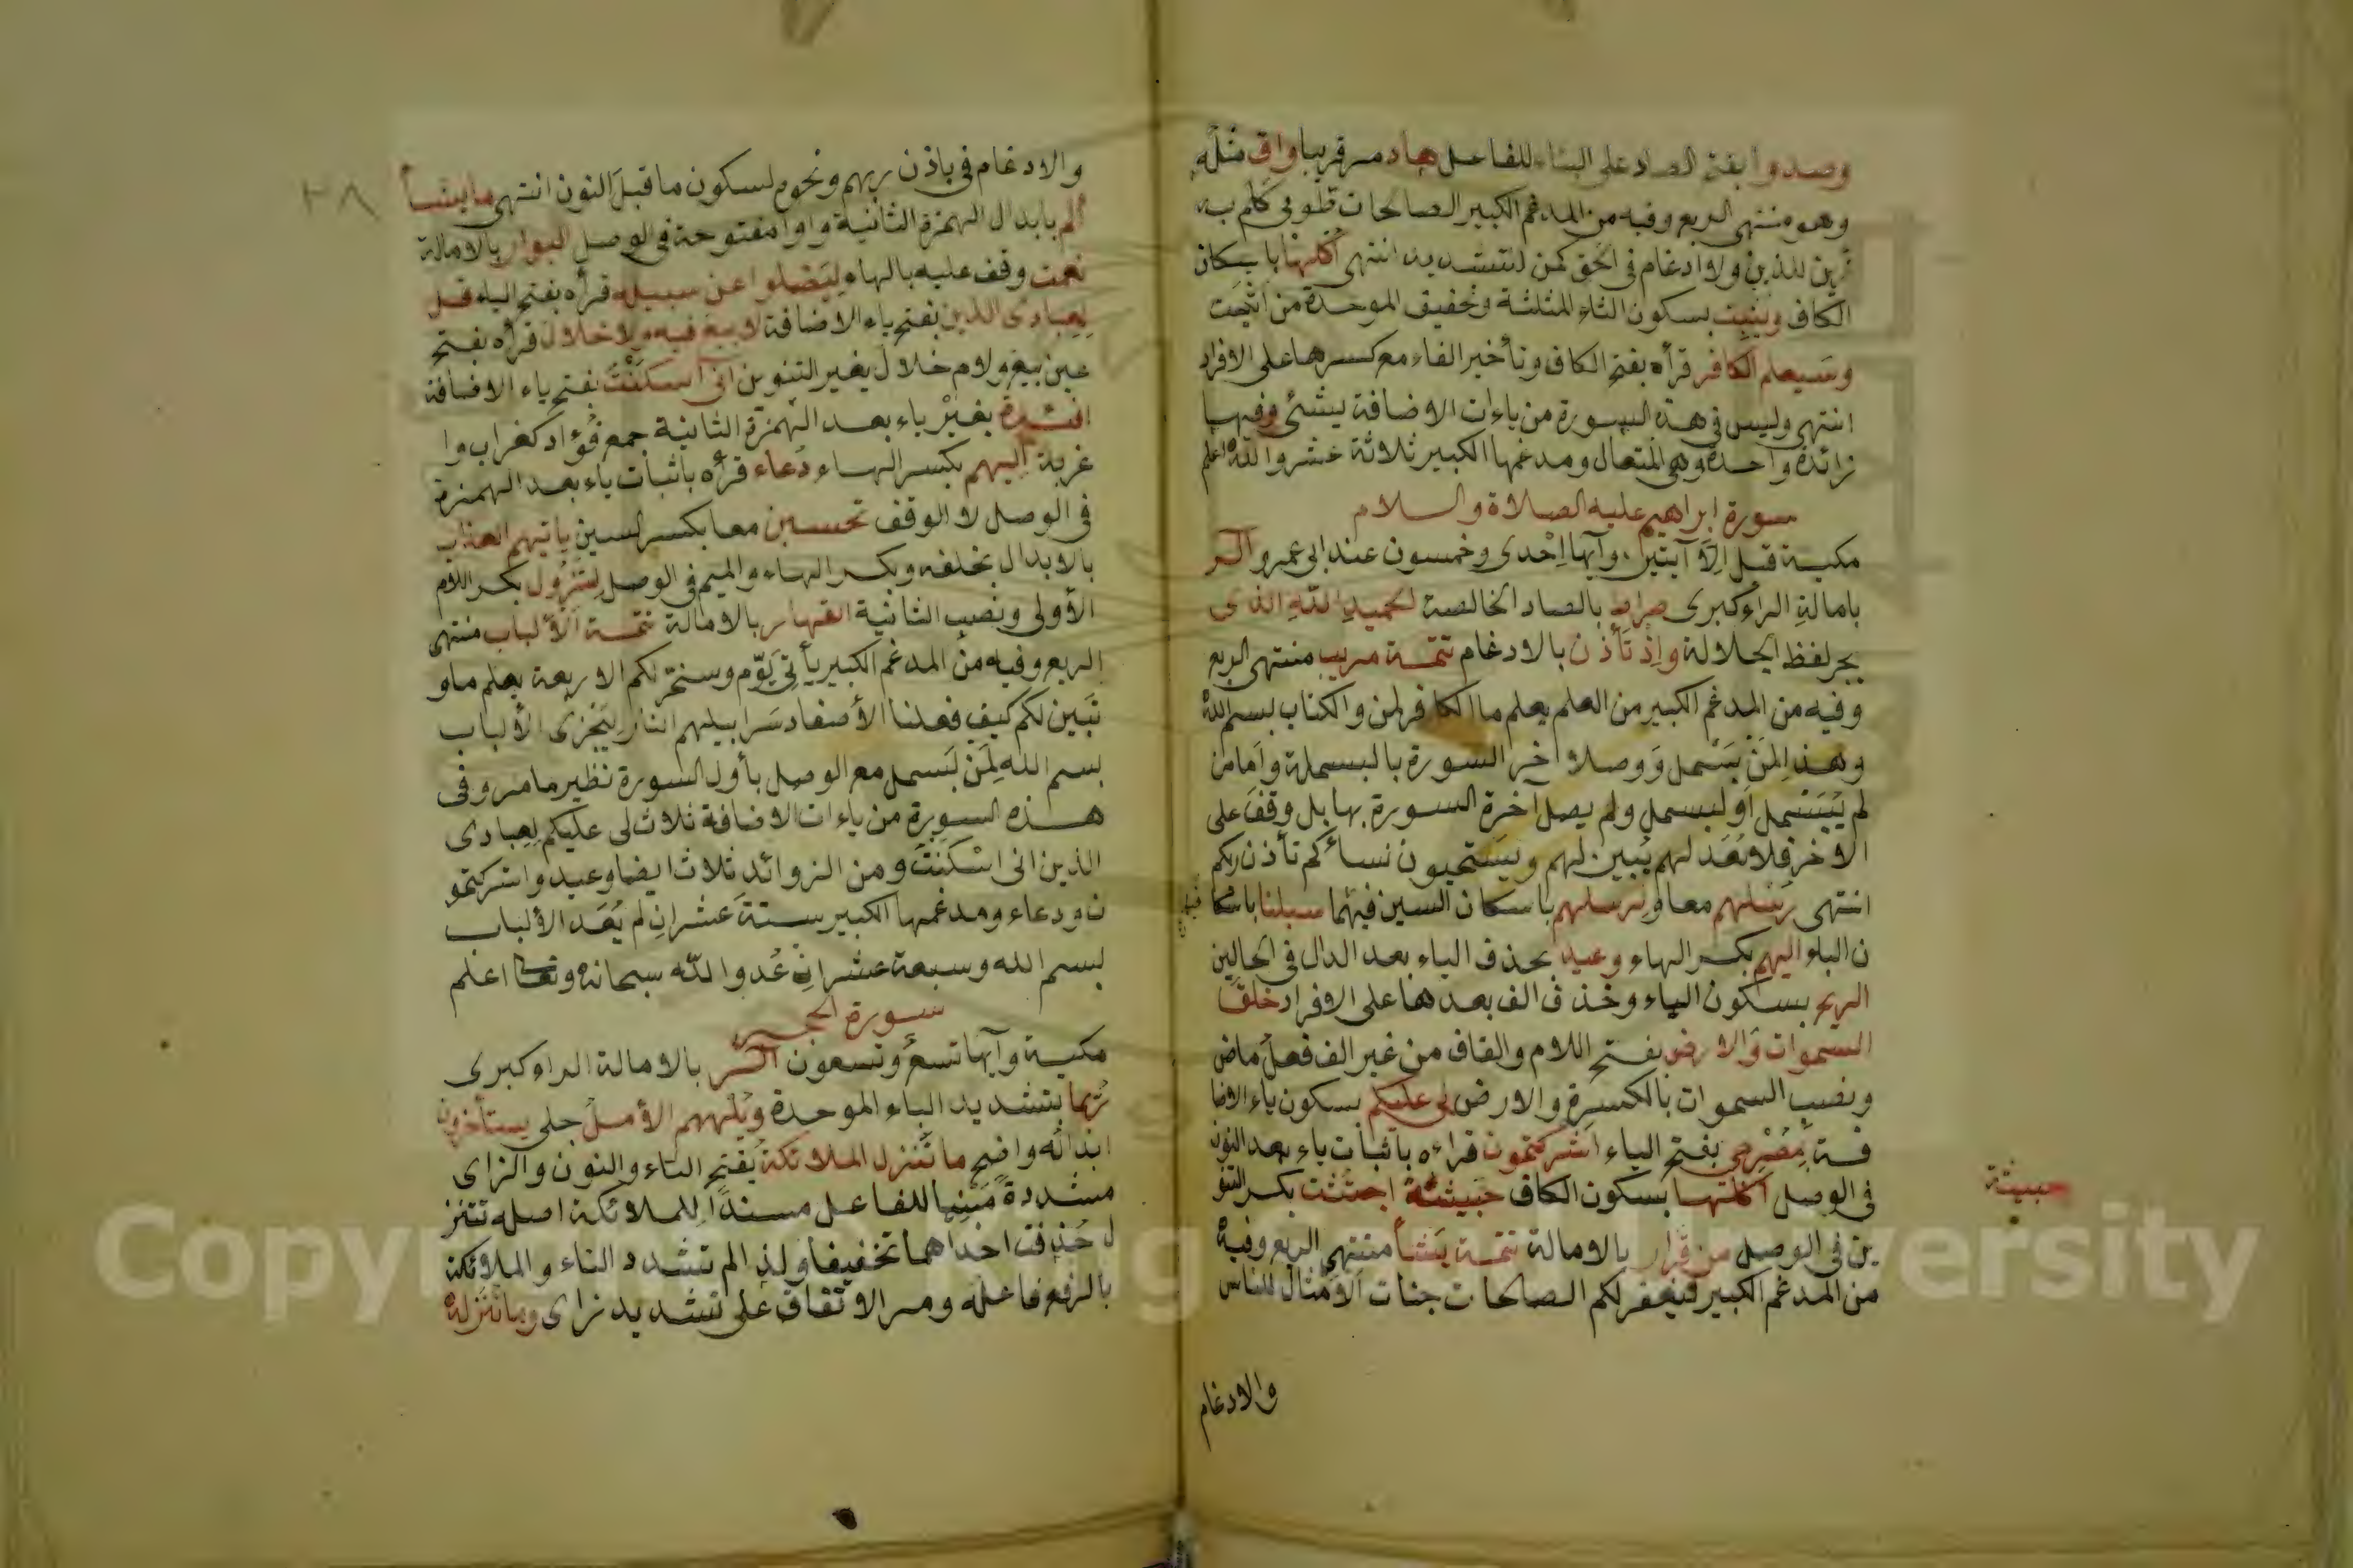 وصدوا بفتح الصاد على البناء للفاعل هاد مر قريبا واق مثله
وهو منتهى الربع وفيه من المدغم الكبير الصالحات طوبى كلم به
زين للذين ولا ادغام فى الحق كمن لتشديد انتهى أكلها باسكان
الكاف ويثبت بسكون الثاء المثلثة وتخفيف الموحدة من اثبت
وسيعلم الكافر قرأه بفتح الكاف وتأخير الفاء مع كسرها على الافراد
انتهى وليس فى هذه السورة من ياءات الاضافة شئ وفيها
زائدة واحدة وهى المتعال ومدغمها الكبير ثلاثة عشر والله اعلم
سورة إبراهيم عليه الصلاة والسلام
مكية قيل إلا آيتين وآيها إحدى وخمسون عند ابى عمرو الر
بامالة الراء كبرى صراط بالصاد الخالصة الحميد الله الذى
بجر لفظ الجلالة وإذ تأذن بالادغام تتمة مريب منتهى الربع
وفيه من المدغم الكبير من العلم يعلم ما الكافر لمن والكتاب بسم الله
وهذا لمن بسمل ووصلا آخر السورة بالبسملة وأما من
لم يبسمل أو لبسمل ولم يصل آخرة السورة بها بل وقف على
الاخر فلا تعد لهم يبين لهم ويستحيون نساءكم تأذن ربكم
انتهى رسلهم معا ولرسلهم باسكان السين فيهما سبلنا باسكا
ن الباء اليهم بكسر الهاء وعيد بحذف الياء بعد الدال فى الحالين
الريح بسكون الياء وحذف الف بعدها على الافراد خلق
السموات والارض بفتح اللام والقاف من غير الف فعل ماض
ونصب السموات بالكسرة والارض لى عليكم بسكون ياء الاضا
فة بمصرخى بفتح الياء اشركتمون قراءه باثبات ياء بعد النون
فى الوصل اكلها بسكون الكاف خبيثة اجتثت بكسر التنو
ين فى الوصل من قرار بالامالة تتمة يشأ منتهى الربع وفيه
من المدغم الكبير فيغفر لكم الصالحات جنات الأمثال للناس
والادغام
خبيثة
٢٨
والادغام فى باذن ربهم ونحوه لسكون ما قبل النون انتهى ما يشأ
ألم بابدال الهمزة الثانية واوا مفتوحة فى الوصل البوار بالامالة
نعمت وقف عليه بالهاء ليضلوا عن سبيله قرأه بفتح الياء قل
لعبادى الذين بفتح ياء الاضافة لا بيع فيه ولا خلال قرأه بفتح
عين بيع ولام خلال بغير التنوين انى أسكنت بفتح ياء الاضافة
افئدة بغير ياء بعد الهمزة الثانية جمع فؤاد كغراب وا
غربة اليهم بكسر الهاء دعاء قرأه باثبات ياء بعد الهمزة
فى الوصل لا الوقف تحسبن معا بكسر السين يأتيهم العذاب
بالابدال بخلفه وبكسر الهاء والميم فى الوصل لتزول بكسر اللام
الأولى ونصب الثانية القهار بالامالة تتمة الألباب منتهى
الربع وفيه من المدغم الكبير يأتى يوم وسخر لكم الاربعة يعلم ما و
تبين لكم كيف فعلنا الأصفاد سرابيلهم النار ليجزى الألباب
بسم الله لمن لبسمل مع الوصل بأول السورة نظير ما مر وفى
هذه السورة من ياءات الاضافة ثلاث لى عليكم لعبادى
الذين انى اسكنت ومن الزوائد ثلاث ايضا وعيد واشركتمو
ن ودعاء ومدغمها الكبير ستة عشر إن لم يعد الألباب
لبسم الله وسبعة عشر إن عد والله سبحانه وتعالى اعلم
سورة الحجر
مكية وآيها تسع وتسعون الر بالامالة الراء كبرى
ربما بتشديد الباء الموحدة ويلههم الأمل جلى يستأخرون
ابداله واضح ما تنزل الملائكة بفتح التاء والنون والزاى
مشددة مبنيا للفاعل مسندا للملائكة اصله تتنز
ل حذفت احداهما تخفيفا ولذا لم تشدد التاء والملائكة
بالرفع فاعله ومر الاتفاق على تشديد زاى وما ننزله
Copyright © King Saud University